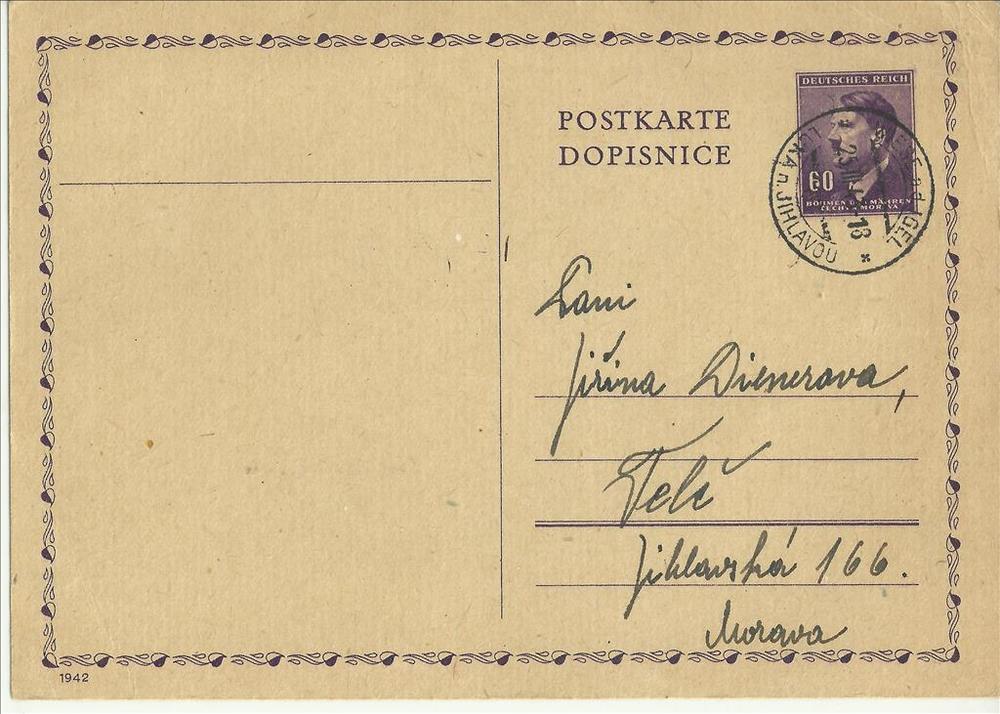 DEUTSCHES REICH
POSTKARTE
DOPISNICE
60
BÖHMEN UND MÄHREN
ČECHY A MORAVA
LUKA n. JIHLAVOU
a.d. IGEL
Paní
Jiřina Dienerova,
Telč
Jihlavská 166.
Morava
1942